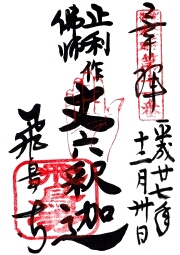 奉拝
平成廿七年
十二月卅日
止利作
佛師
丈六釈迦
飛鳥寺